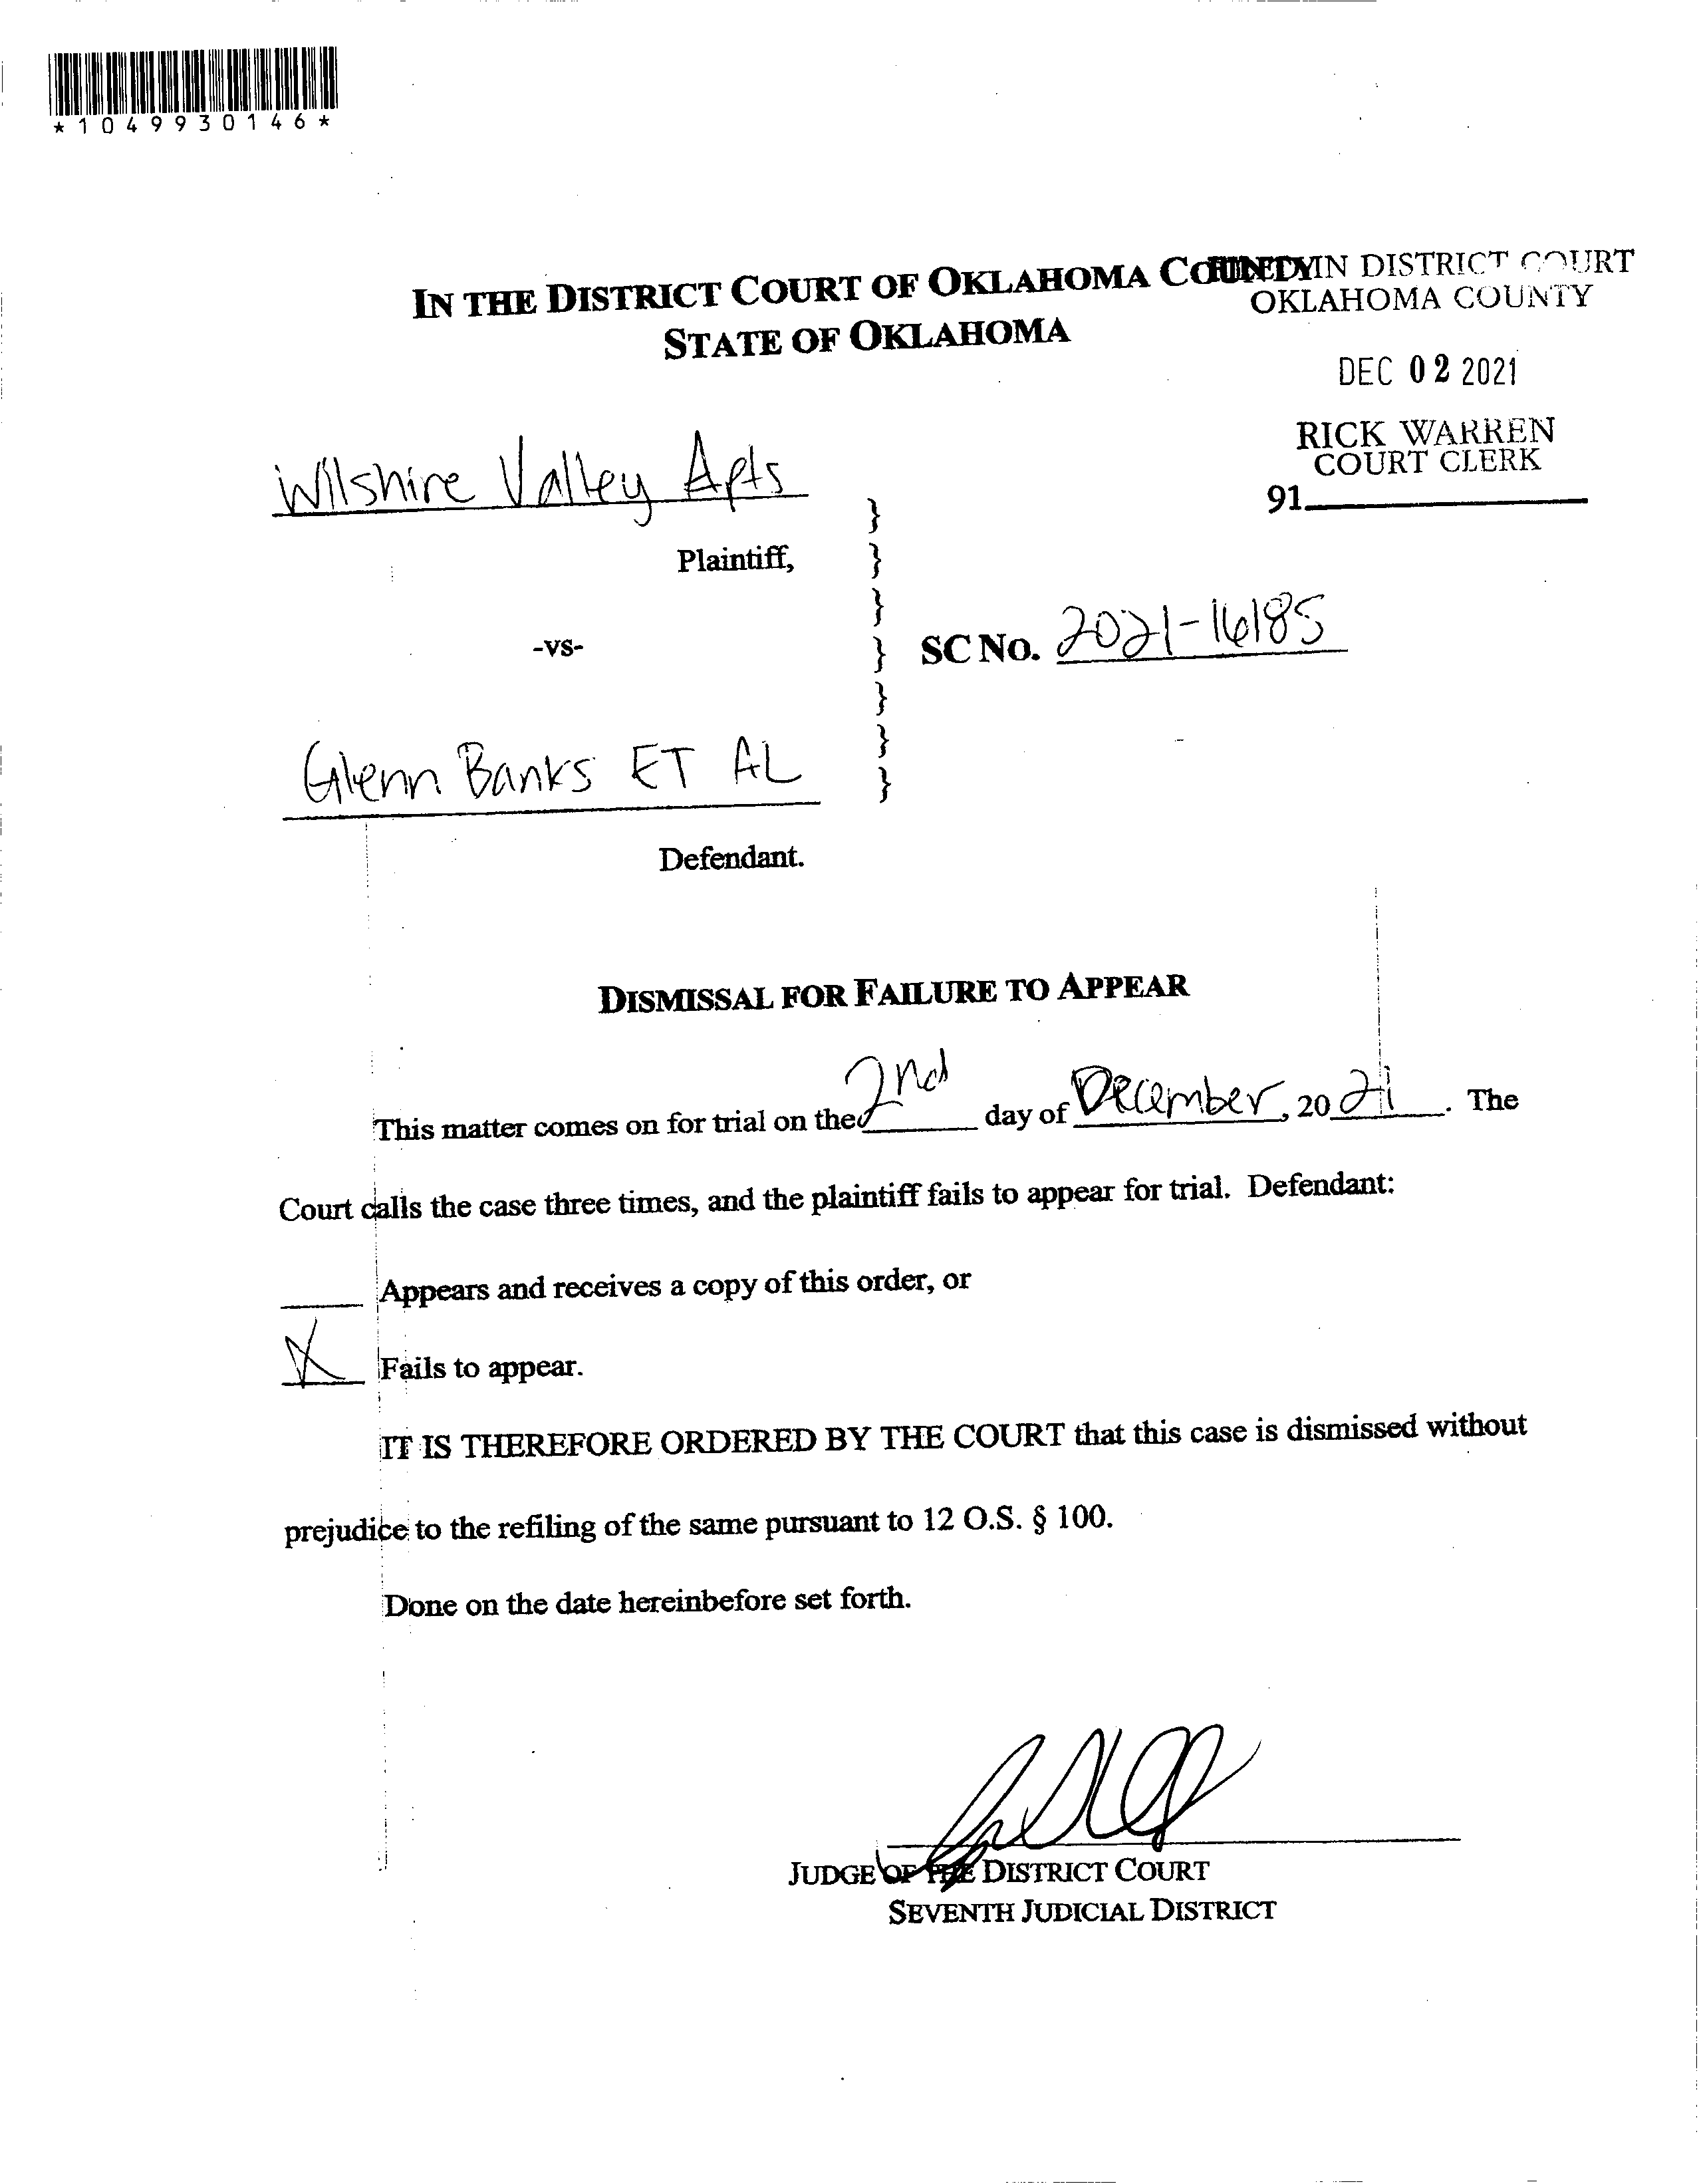 *1049930146*
IN THE DISTRICT COURT OF OKLAHOMA COUNTY
STATE OF OKLAHOMA
FILED IN DISTRICT COURT
OKLAHOMA COUNTY
DEC 02 2021
RICK WARREN
COURT CLERK
91
Wilshire Valley Apts
Plaintiff,
-vs-
SC No. 2021-16185
Glenn Banks ET AL
Defendant.
DISMISSAL FOR FAILURE TO APPEAR
This matter comes on for trial on the 2nd day of December, 2021. The
Court calls the case three times, and the plaintiff fails to appear for trial. Defendant:
Appears and receives a copy of this order, or
X Fails to appear.
IT IS THEREFORE ORDERED BY THE COURT that this case is dismissed without
prejudice to the refiling of the same pursuant to 12 O.S. § 100.
Done on the date hereinbefore set forth.
JUDGE OF THE DISTRICT COURT
SEVENTH JUDICIAL DISTRICT